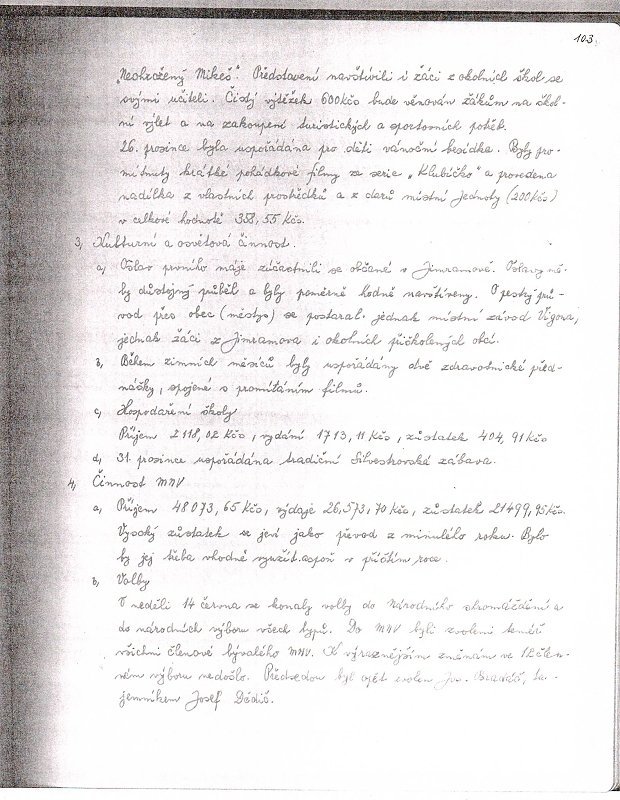 103.
„Neohrožený Mikeš". Představení navštívili i žáci z okolních škol se
svými učiteli. Čistý výtěžek 600 Kčs bude věnován žákům na škol-
ní výlet a na zakoupení turistických a sportovních potřeb.
26. prosince byla uspořádána pro děti vánoční besídka. Byly pro-
mítnuty krátké pohádkové filmy ze serie „Klubíčko" a provedena
nadílka z vlastních prostředků a z darů místní Jednoty (200 Kčs)
v celkové hodnotě 358,55 Kčs.
3, Kulturní a osvětová činnost.
a, Oslav prvního máje zúčastnili se občané v Jimramově. Oslavy mě-
ly důstojný průběl a byly poměrně hodně navštíveny. O pestrý prů-
vod přes obec (městys) se postaral jednak místní závod Vigona,
jednak žáci z Jimramova i okolních přiškolených obcí.
b, Během zimních měsíců byly uspořádány dvě zdravotnické před-
nášky, spojené s promítáním filmů.
c, Hospodaření školy
Příjem 2118,02 Kčs, vydání 1713,11 Kčs, zůstatek 404,91 Kčs
d, 31. prosince uspořádána tradiční Silvestrovská zábava.
4, Činnost MNV
a, Příjem 48 073,65 Kčs, výdaje 26,573,70 Kčs, zůstatek 21499,95 Kčs.
Vysoký zůstatek se jeví jako převod z minulého roku. Bylo
by jej třeba vhodně využít aspoň v příštím roce.
b, Volby
V neděli 14 června se konaly volby do Národního shromáždění a
do národních výboru všech typů. Do MNV byli zvoleni téměř
všichni členové bývalého MNV. K výraznějším změnám ve 12 člen-
ném výboru nedošlo. Předsedou byl opět zvolen Jos. ta-
jemníkem Josef Dědič.